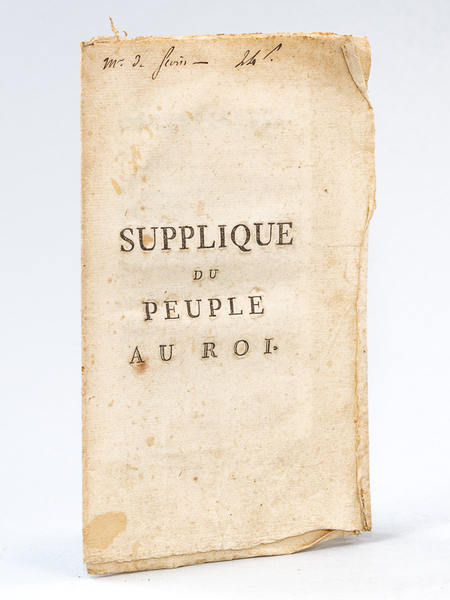 Mr. de Sevin — 24 s.
SUPPLIQUE
DU
PEUPLE
AU ROI.